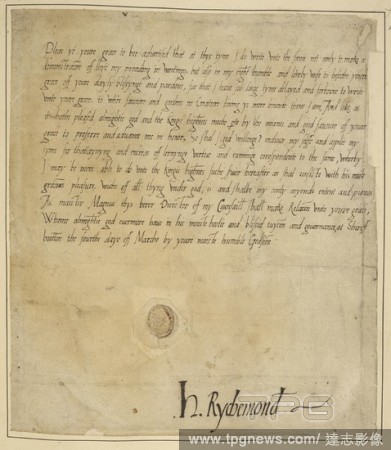 Pleas it youre grace to be advertised that at thys tyme I do write unto the same not only to make a
demonstration of thys my proceding in writinge, but also in my right humble and lowly wise to beseche youre
grace of youre dayly blessynge and pardon, for that I have so long tyme delayed and forborne to write
unto youre grace, to whose favoure and goodnes no creature living ys more bounde then I am. And like as
it hathe pleased almightie god and the kings highnes
grace to preferre and advaunce me in honor, so shal I god willinge endevor my selfe and applie my
tyme for th'atteigning and encrese of lernyng vertue and cunnyng correspondente to the same wherby
I may be more able to do unto the kings highnes suche service hereafter as shal consiste with his most
gracious pleasure, whiche of all thyng under god, is and shalbe my only mynde entent and purpose
As master Magnus thys berer Directour of my Counsaill shall make Relation unto youre grace,
Whome almightie god evermore have in his moste and blissed tuycion and governance, at Sheryf
hutton the fourthe daye of Marche by youre moste humble Godson
H. Rychemond
TPG
www.tpgnews.com/ 達志影像